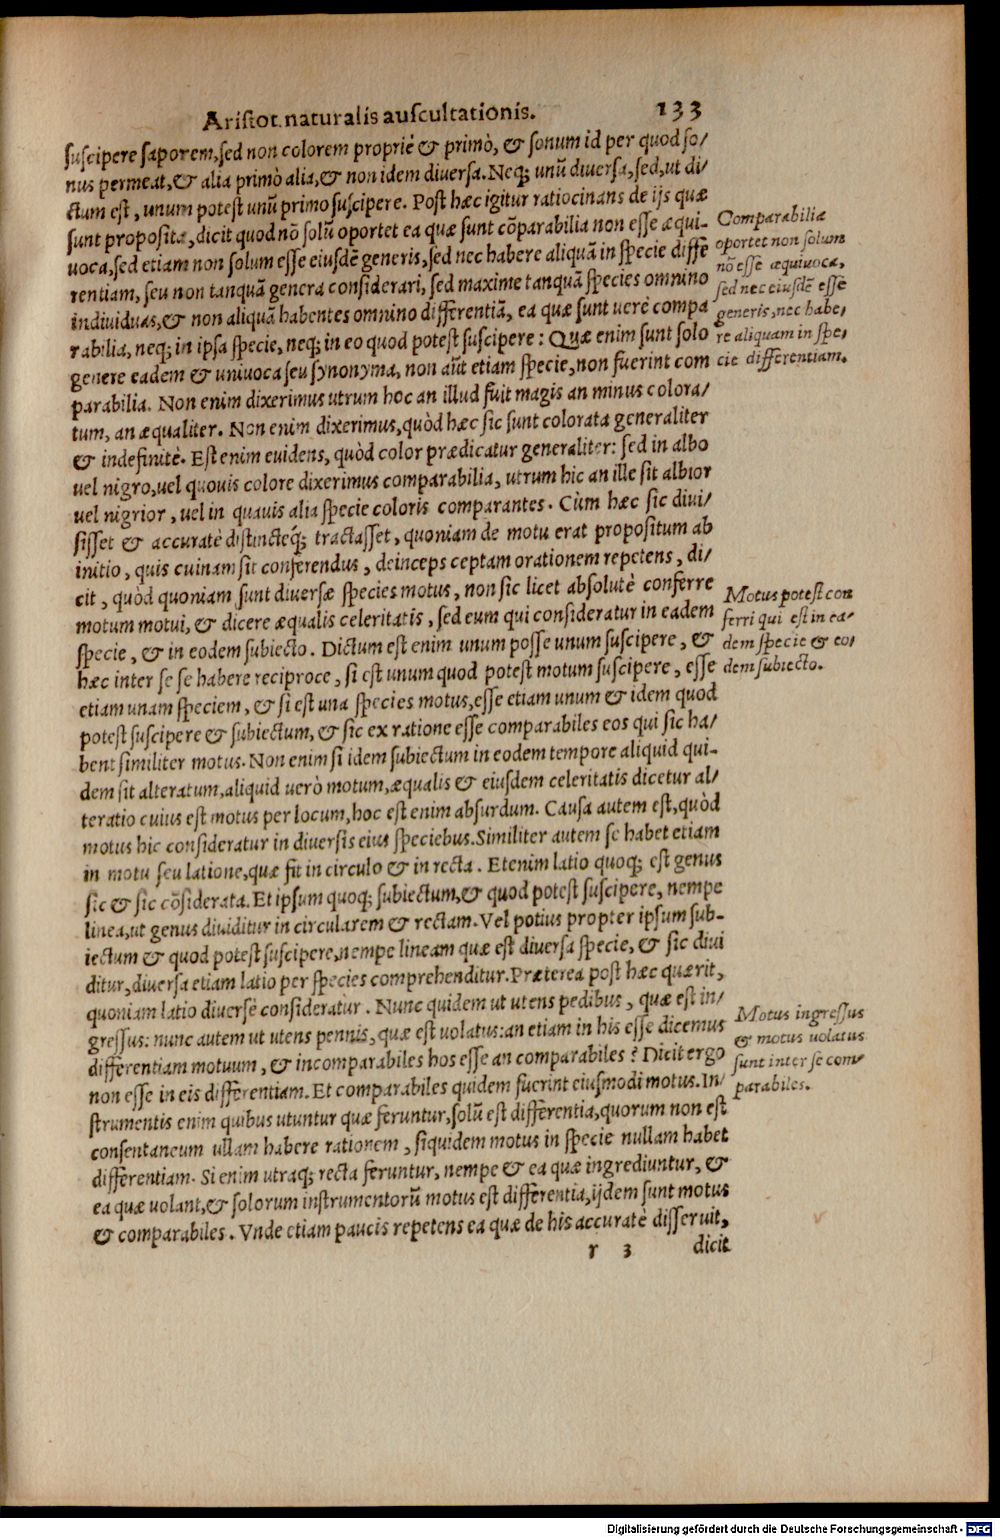 Aristot. naturalis auscultationis. 133
suscipere saporem, sed non colorem propriè & primò, & sonum id per quod so/
nus permeat, & alia primò alia, & non idem diuersa. Neq; unũ diuersa, sed, ut di/
ctum est, unum potest unũ primo suscipere. Post hæc igitur ratiocinans de ijs quæ
sunt proposita, dicit quod nõ solũ oportet ea quæ sunt cõparabilia non esse æqui-
uoca, sed etiam non solum esse eiusdẽ generis, sed nec habere aliquã in specie diffe
rentiam, seu non tanquã genera considerari, sed maxime tanquã species omnino
indiuiduas, & non aliquã habentes omnino differentiã, ea quæ sunt uerè compa
rabilia, neq; in ipsa specie, neq; in eo quod potest suscipere: Quæ enim sunt solo
genere eadem & uniuoca seu synonyma, non aũt etiam specie, non fuerint com
parabilia. Non enim dixerimus utrum hoc an illud fuit magis an minus colora/
tum, an æqualiter. Non enim dixerimus, quòd hæc sic sunt colorata generaliter
& indefinitè. Est enim euidens, quòd color prædicatur generaliter: sed in albo
uel nigro, uel quouis colore dixerimus comparabilia, utrum hic an ille sit albior
uel nigrior, uel in quauis alia specie coloris comparantes. Cùm hæc sic diui/
sisset & accuratè distincteq́; tractasset, quoniam de motu erat propositum ab
initio, quis cuinam sit conferendus, deinceps ceptam orationem repetens, di/
cit, quòd quoniam sunt diuersæ species motus, non sic licet absolutè conferre
motum motui, & dicere æqualis celeritatis, sed eum qui consideratur in eadem
specie, & in eodem subiecto. Dictum est enim unum posse unum suscipere, &
hæc inter se se habere reciproce, si est unum quod potest motum suscipere, esse
etiam unam speciem, & si est una species motus, esse etiam unum & idem quod
potest suscipere & subiectum, & sic ex ratione esse comparabiles eos qui sic ha/
bent similiter motus. Non enim si idem subiectum in eodem tempore aliquid qui-
dem sit alteratum, aliquid uerò motum, æqualis & eiusdem celeritatis dicetur al/
teratio cuius est motus per locum, hoc est enim absurdum. Causa autem est, quòd
motus hic consideratur in diuersis eius speciebus. Similiter autem se habet etiam
in motu seu latione, quæ fit in circulo & in recta. Etenim latio quoq; est genus
sic & sic cõsiderata. Et ipsum quoq; subiectum, & quod potest suscipere, nempe
linea, ut genus diuiditur in circularem & rectam. Vel potius propter ipsum sub-
iectum & quod potest suscipere, nempe lineam quæ est diuersa specie, & sic diui
ditur, diuersa etiam latio per species comprehenditur. Præterea post hæc quærit,
quoniam latio diuersè consideratur. Nunc quidem ut utens pedibus, quæ est in/
gressus: nunc autem ut utens pennis, quæ est uolatus: an etiam in his esse dicemus
differentiam motuum, & incomparabiles hos esse an comparabiles? Dicit ergo
non esse in eis differentiam. Et comparabiles quidem fuerint eiusmodi motus. In/
strumentis enim quibus utuntur quæ feruntur, solũ est differentia, quorum non est
consentaneum ullam habere rationem, siquidem motus in specie nullam habet
differentiam. Si enim utraq; recta feruntur, nempe & ea quæ ingrediuntur, &
ea quæ uolant, & solorum instrumentorũ motus est differentia, ijdem sunt motus
& comparabiles. Vnde etiam paucis repetens ea quæ de his accuratè disseruit,
r 3 dicit
Comparabilia
oportet non solum
nõ esse æquiuoca,
sed nec eiusdẽ esse
generis, nec habe,
re aliquam in spe,
cie differentiam.
Motus potest con
ferri qui est in ea-
dem specie & eo/
dem subiecto.
Motus ingressus
& motus uolatus
sunt inter se com/
parabiles.
Digitalisierung gefördert durch die Deutsche Forschungsgemeinschaft - DFG